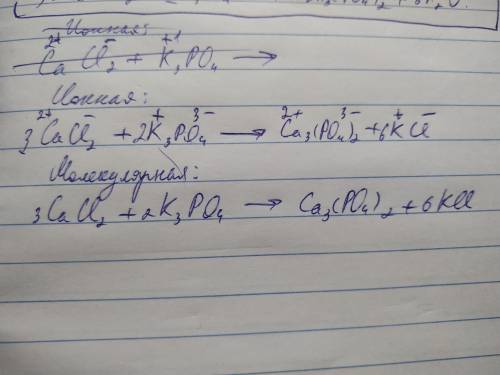 Ионная:
Ca²⁺ Cl⁻₂ + K⁺¹₃PO₄ →
Ионная:
3Ca²⁺Cl⁻₂ + 2K⁺₃PO₄³⁻ → Ca²⁺₃(PO₄)³⁻₂ + 6K⁺Cl⁻
Молекулярная:
3CaCl₂ + 2K₃PO₄ → Ca₃(PO₄)₂ + 6KCl